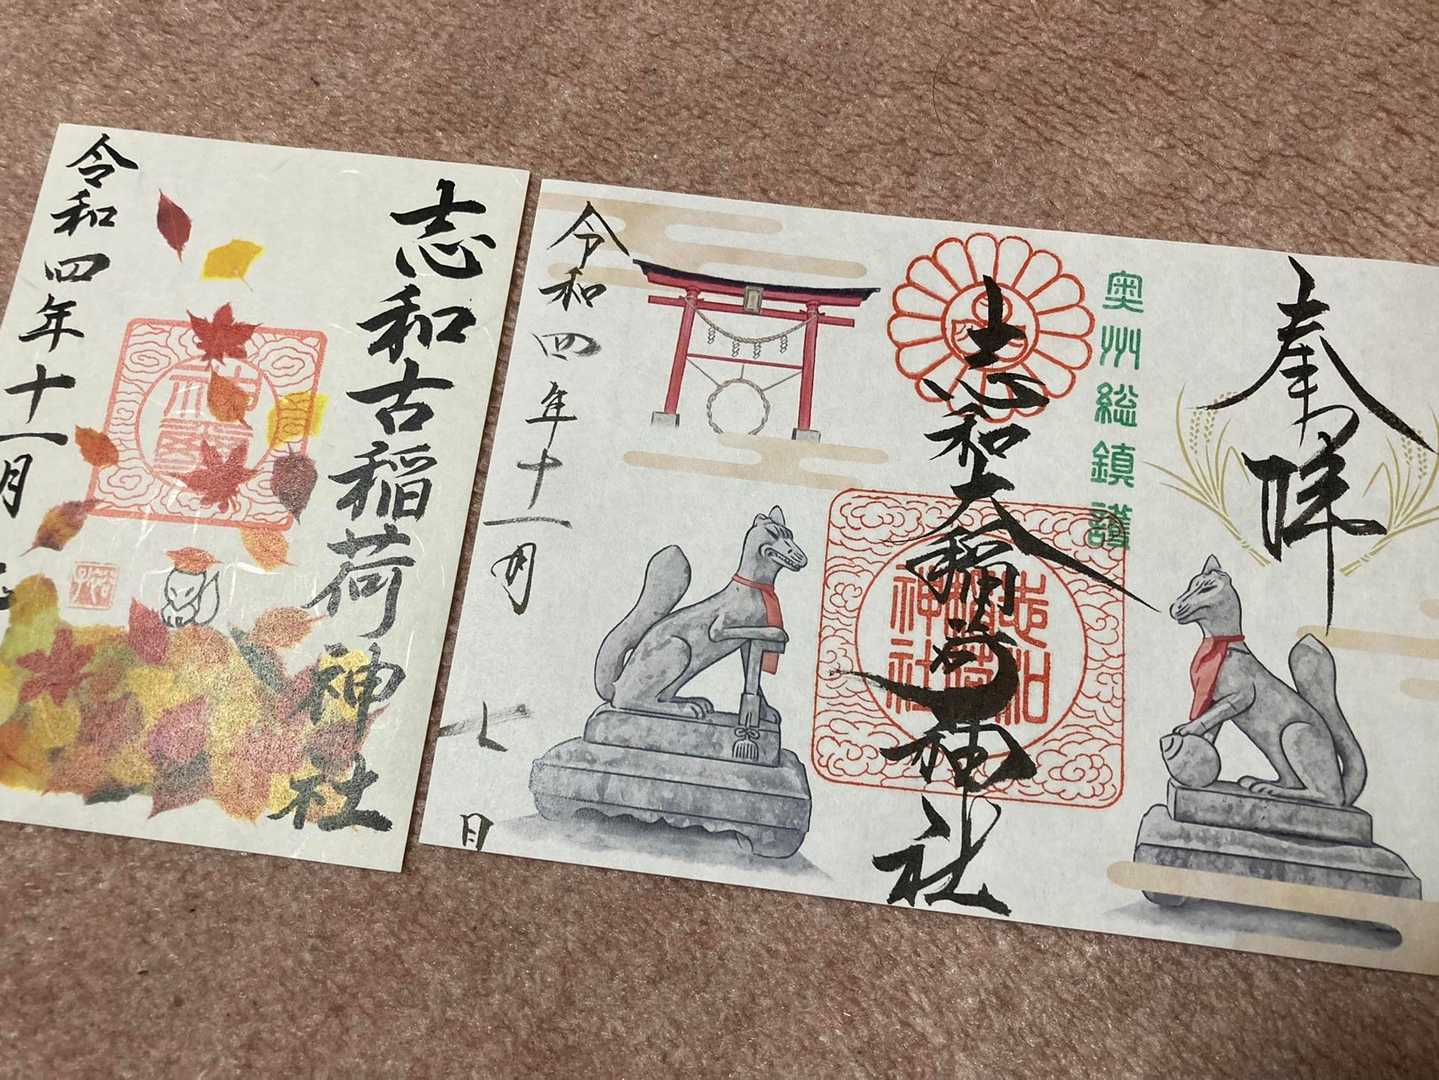 奉拝
奥州総鎮護
志和大稲荷神社
令和四年十一月七日
志和古稲荷神社
令和四年十一月